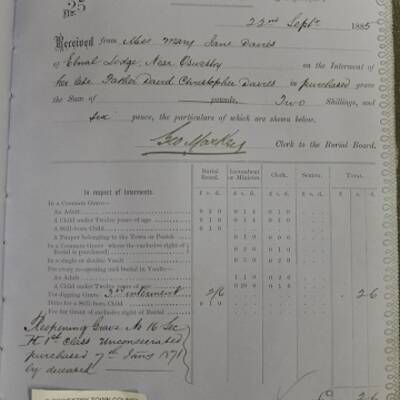 No. 25
22nd Septr 1885
Received from Miss Mary Jane Davies
of Ebnal Lodge, Near Oswestry on the Interment of
her late Father David Christopher Davies in purchased grave
the Sum of pounds, Two Shillings, and
six pence, the particulars of which are shown below.
Geo Markes
Clerk to the Burial Board.
In respect of Interments. Burial Board. Incumbent or Minister. Clerk. Sexton. Total.
£ s. d. £ s. d. £ s. d. £ s. d. £ s. d.
In a Common Grave—
An Adult
A Child under Twelve years of age
A Still-born Child
A Pauper belonging to the Town or Parish
In a Common Grave (where the exclusive right of Burial is purchased)
In a single or double Vault
For every re-opening and burial in Vaults—
An Adult
A Child under Twelve years of age
For digging Grave 2nd interment 2/6 2 6
Ditto for a Still-born Child
Fee for Grant of exclusive right of Burial
Reopening Grave No 16 Sec
H 1st Class Unconsecrated
purchased 7th Jany 1871
by deceased
£ 2 6
OSWESTRY TOWN COUNCIL